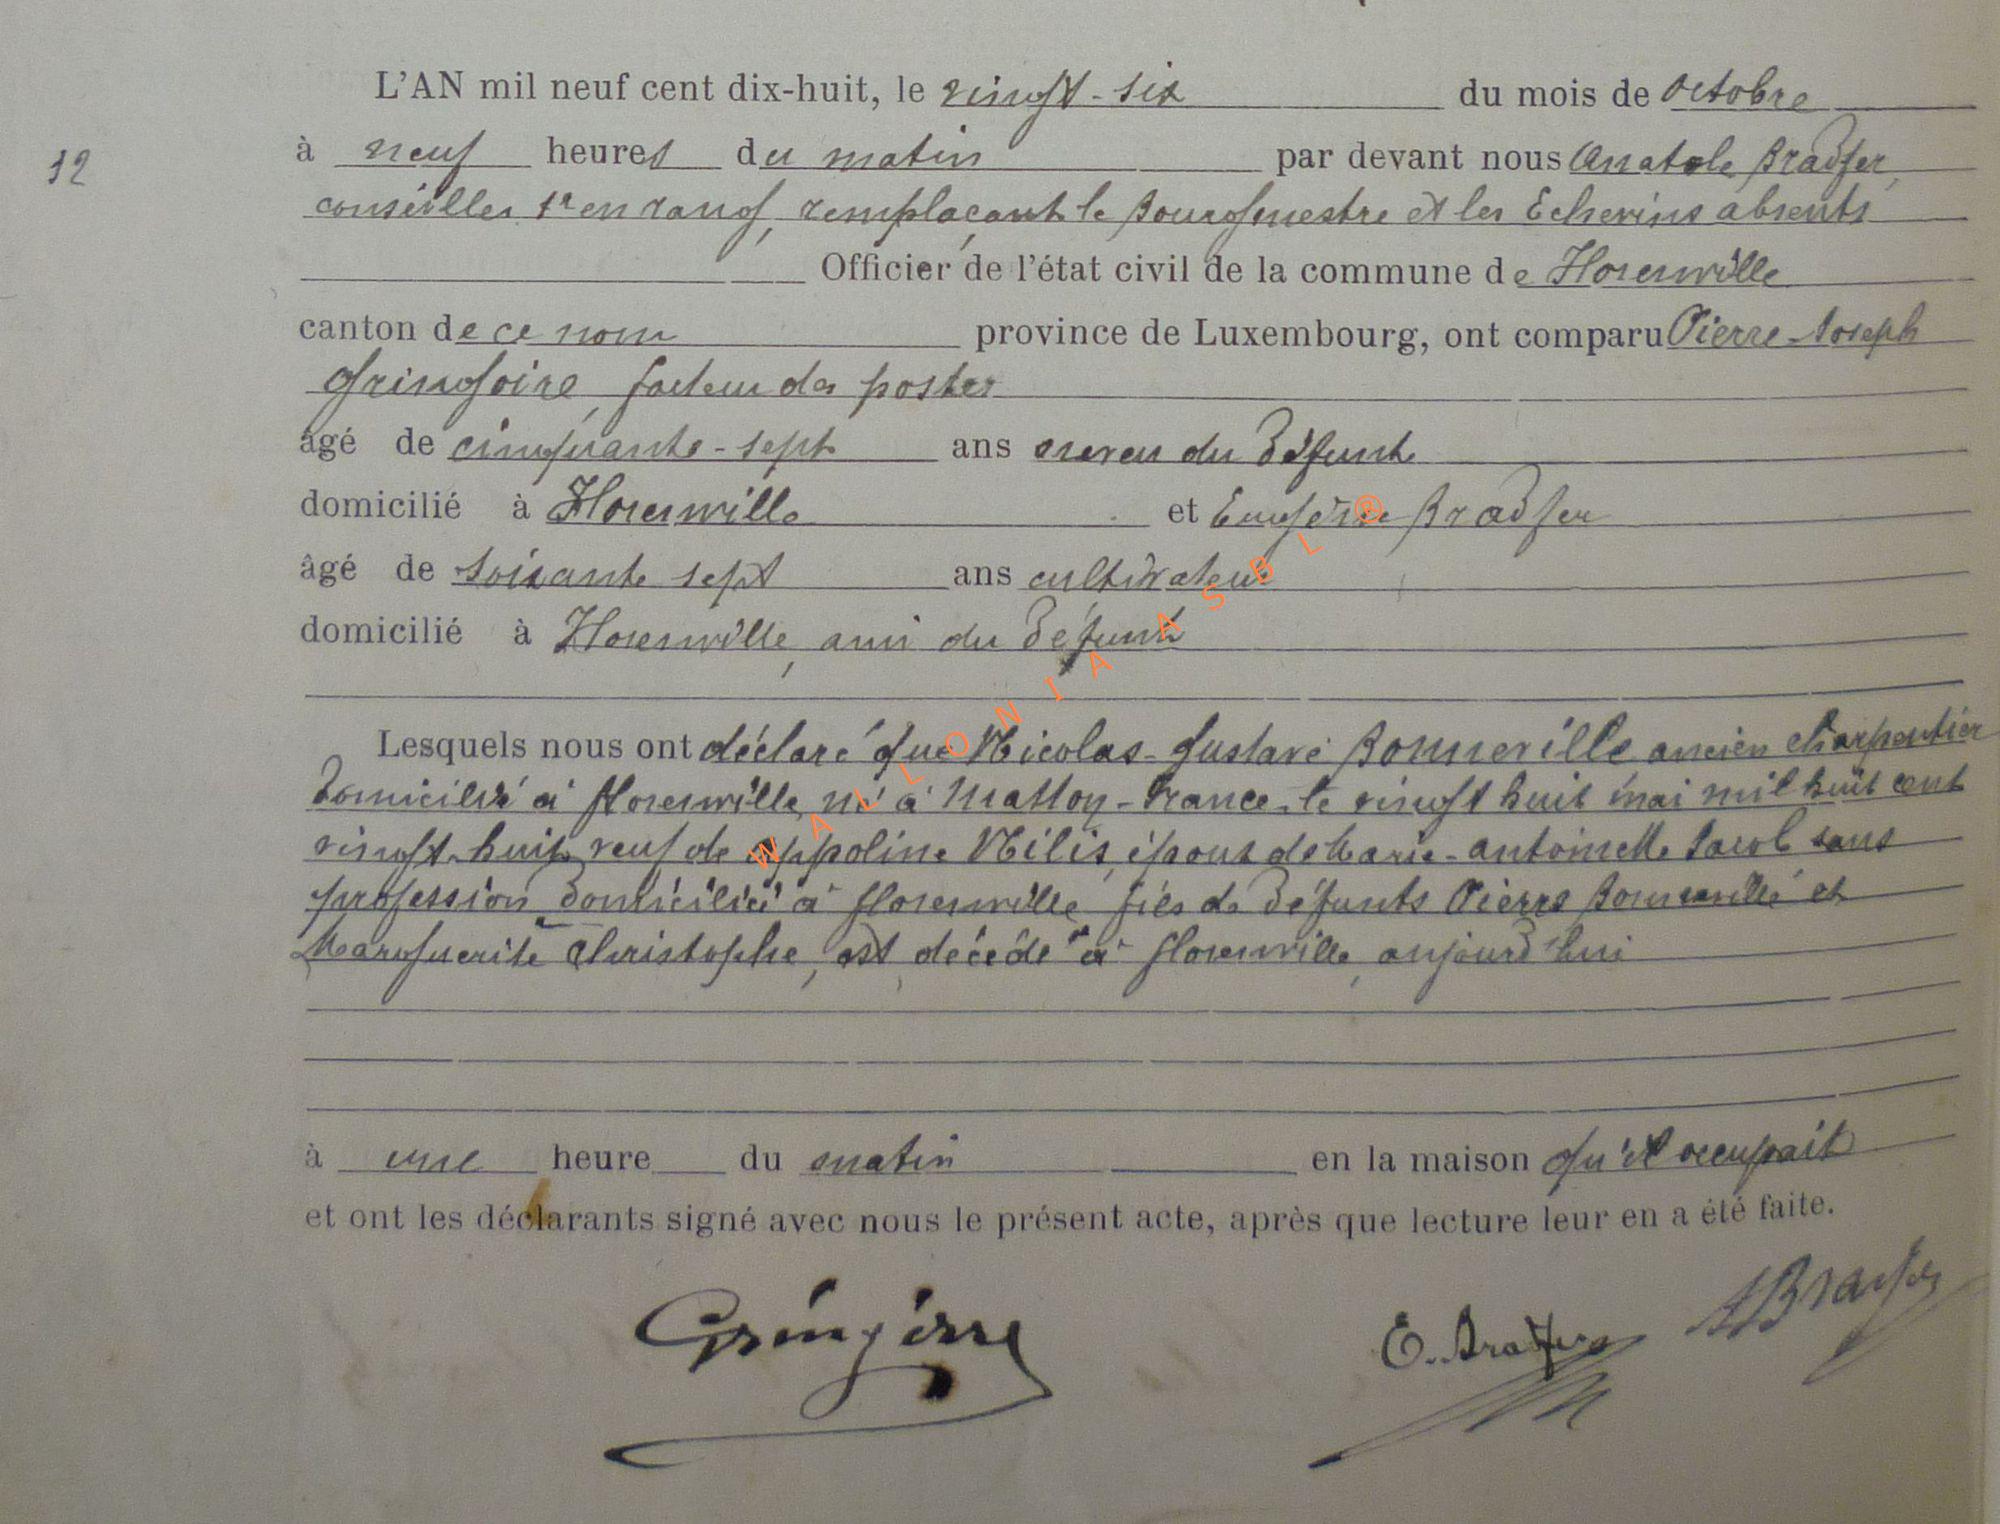 L'AN mil neuf cent dix-huit, le vingt-six du mois de octobre
12
à neuf heures du matin par devant nous Anatole Bradfer,
conseiller 1r en rang, remplaçant le Bourgmestre et les Echevins absents
Officier de l'état civil de la commune de Florenville
canton de ce nom province de Luxembourg, ont comparu Pierre-Joseph
Gringoire, facteur des postes
âgé de cinquante-sept ans neveu du défunt
domicilié à Florenville et Eugène Bradfer
âgé de soixante sept ans cultivateur
domicilié à Florenville, ami du défunt
Lesquels nous ont déclaré que Nicolas-Gustave Bonneville ancien charpentier
domicilié à Florenville, né à Matton-France, le vingt huit mai mil huit cent
vingt-huit, veuf de Appoline Nilis, époux de Marie-Antoinette Jacob sans
profession domiciliée à Florenville, fils de défunts Pierre Bonneville et
Marguerite Christophe, est décédé à Florenville, aujourd'hui
à une heure du matin en la maison qu'il occupait
et ont les déclarants signé avec nous le présent acte, après que lecture leur en a été faite.
Gringoire E. Bradfer ABradfer
WALLONIA ASBL ®